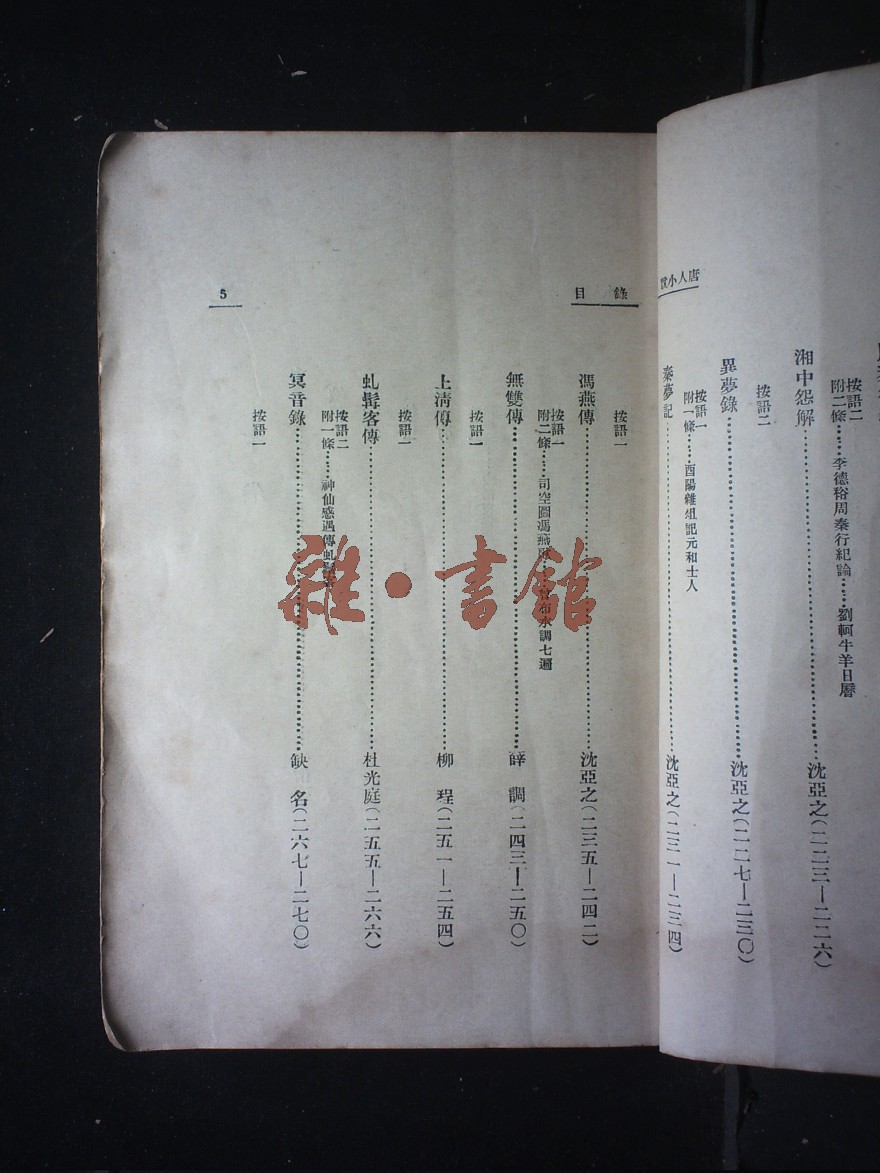 唐人小說
按語二
附二條……李德裕周秦行紀論……劉軻牛羊日曆
湘中怨解……沈亞之(二二三—二二六)
按語二
異夢錄……沈亞之(二二七—二三〇)
按語一
附一條……酉陽雜俎記元和士人
秦夢記……沈亞之(二三一—二三四)
目錄
按語一
馮燕傳……沈亞之(二三五—二四二)
按語一
附二條……司空圖馮燕歌 布水調七遍
無雙傳……薛調(二四三—二五〇)
按語一
上清傳……柳珵(二五一—二五四)
按語一
虬髯客傳……杜光庭(二五五—二六六)
按語二
附一條……神仙感遇傳虬
冥音錄……缺名(二六七—二七〇)
按語一
5
雜·書館